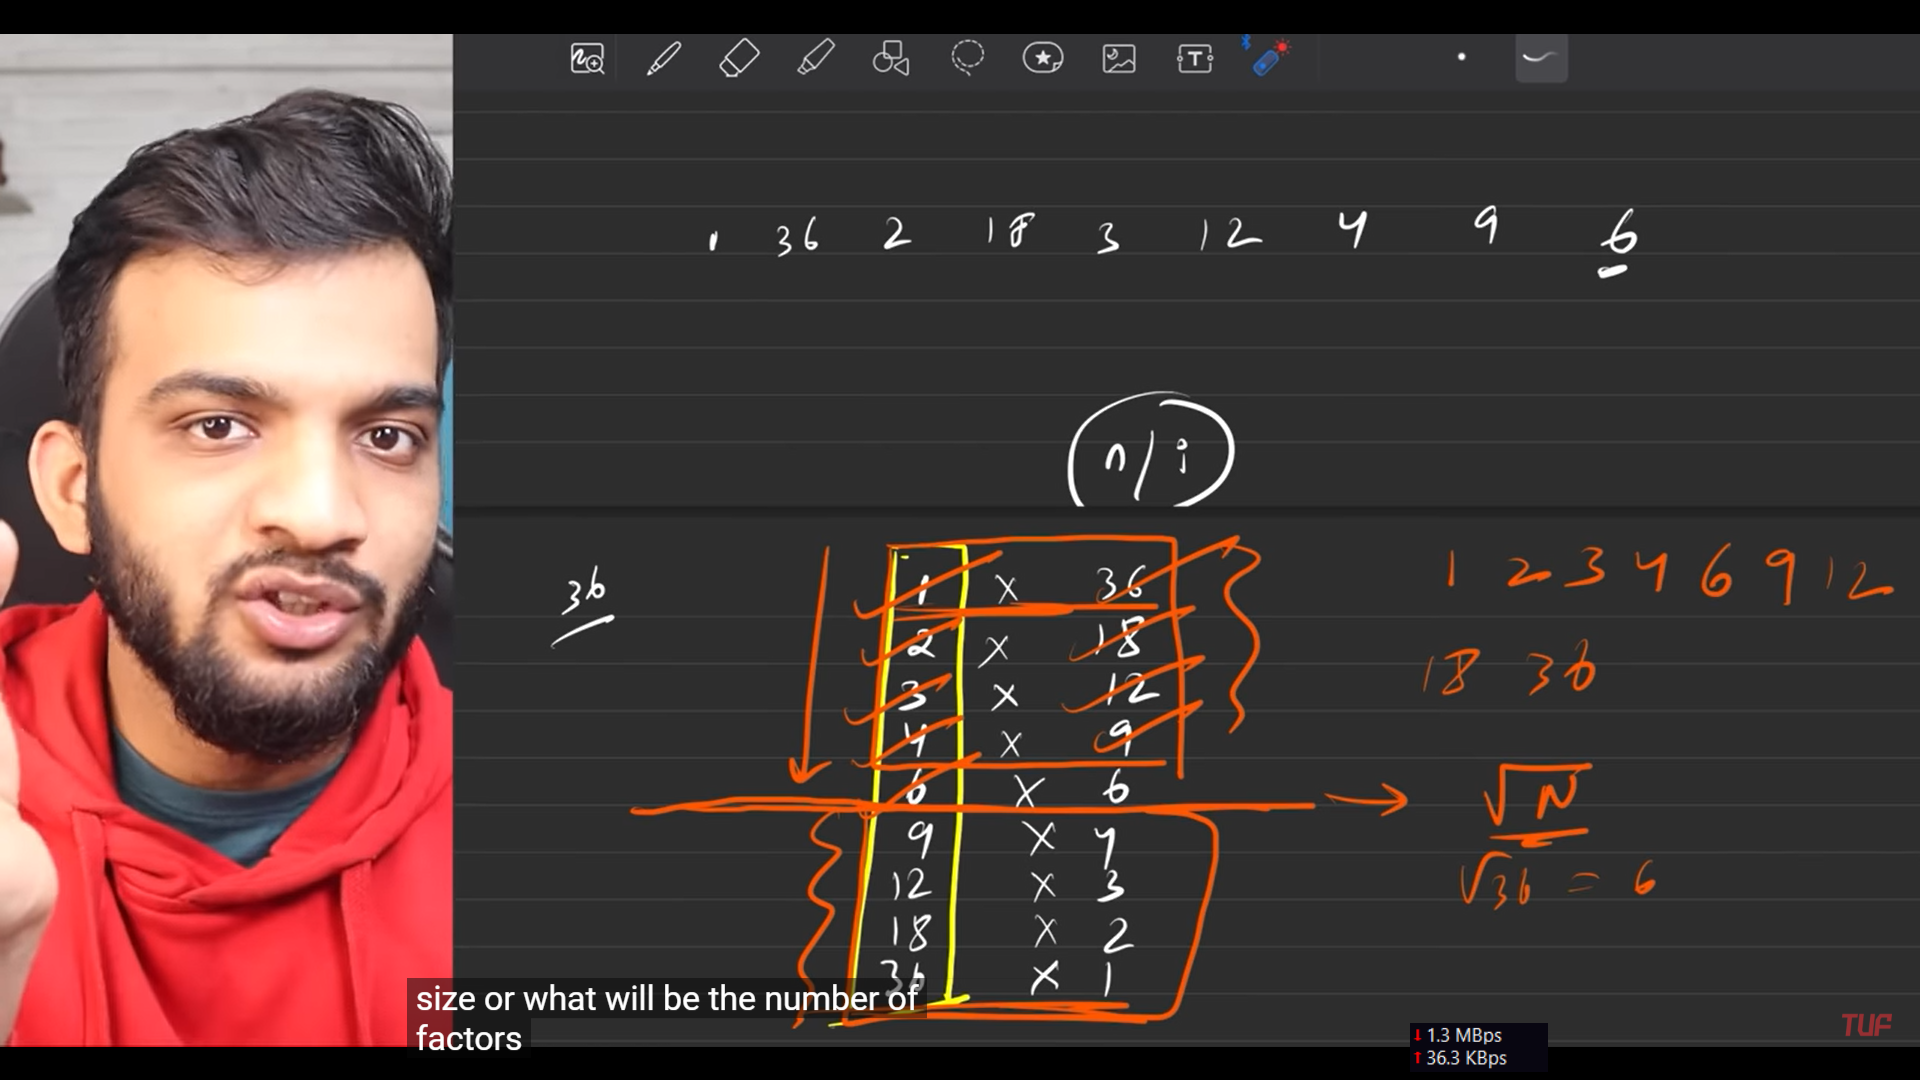 1 36 2 18 3 12 4 9 6
n/i
36
1 x 36
2 x 18
3 x 12
4 x 9
6 x 6
9 x 4
12 x 3
18 x 2
36 x 1
1 2 3 4 6 9 12
18 36
√N
√36 = 6
size or what will be the number of
factors
TUF
1.3 MBps
36.3 KBps